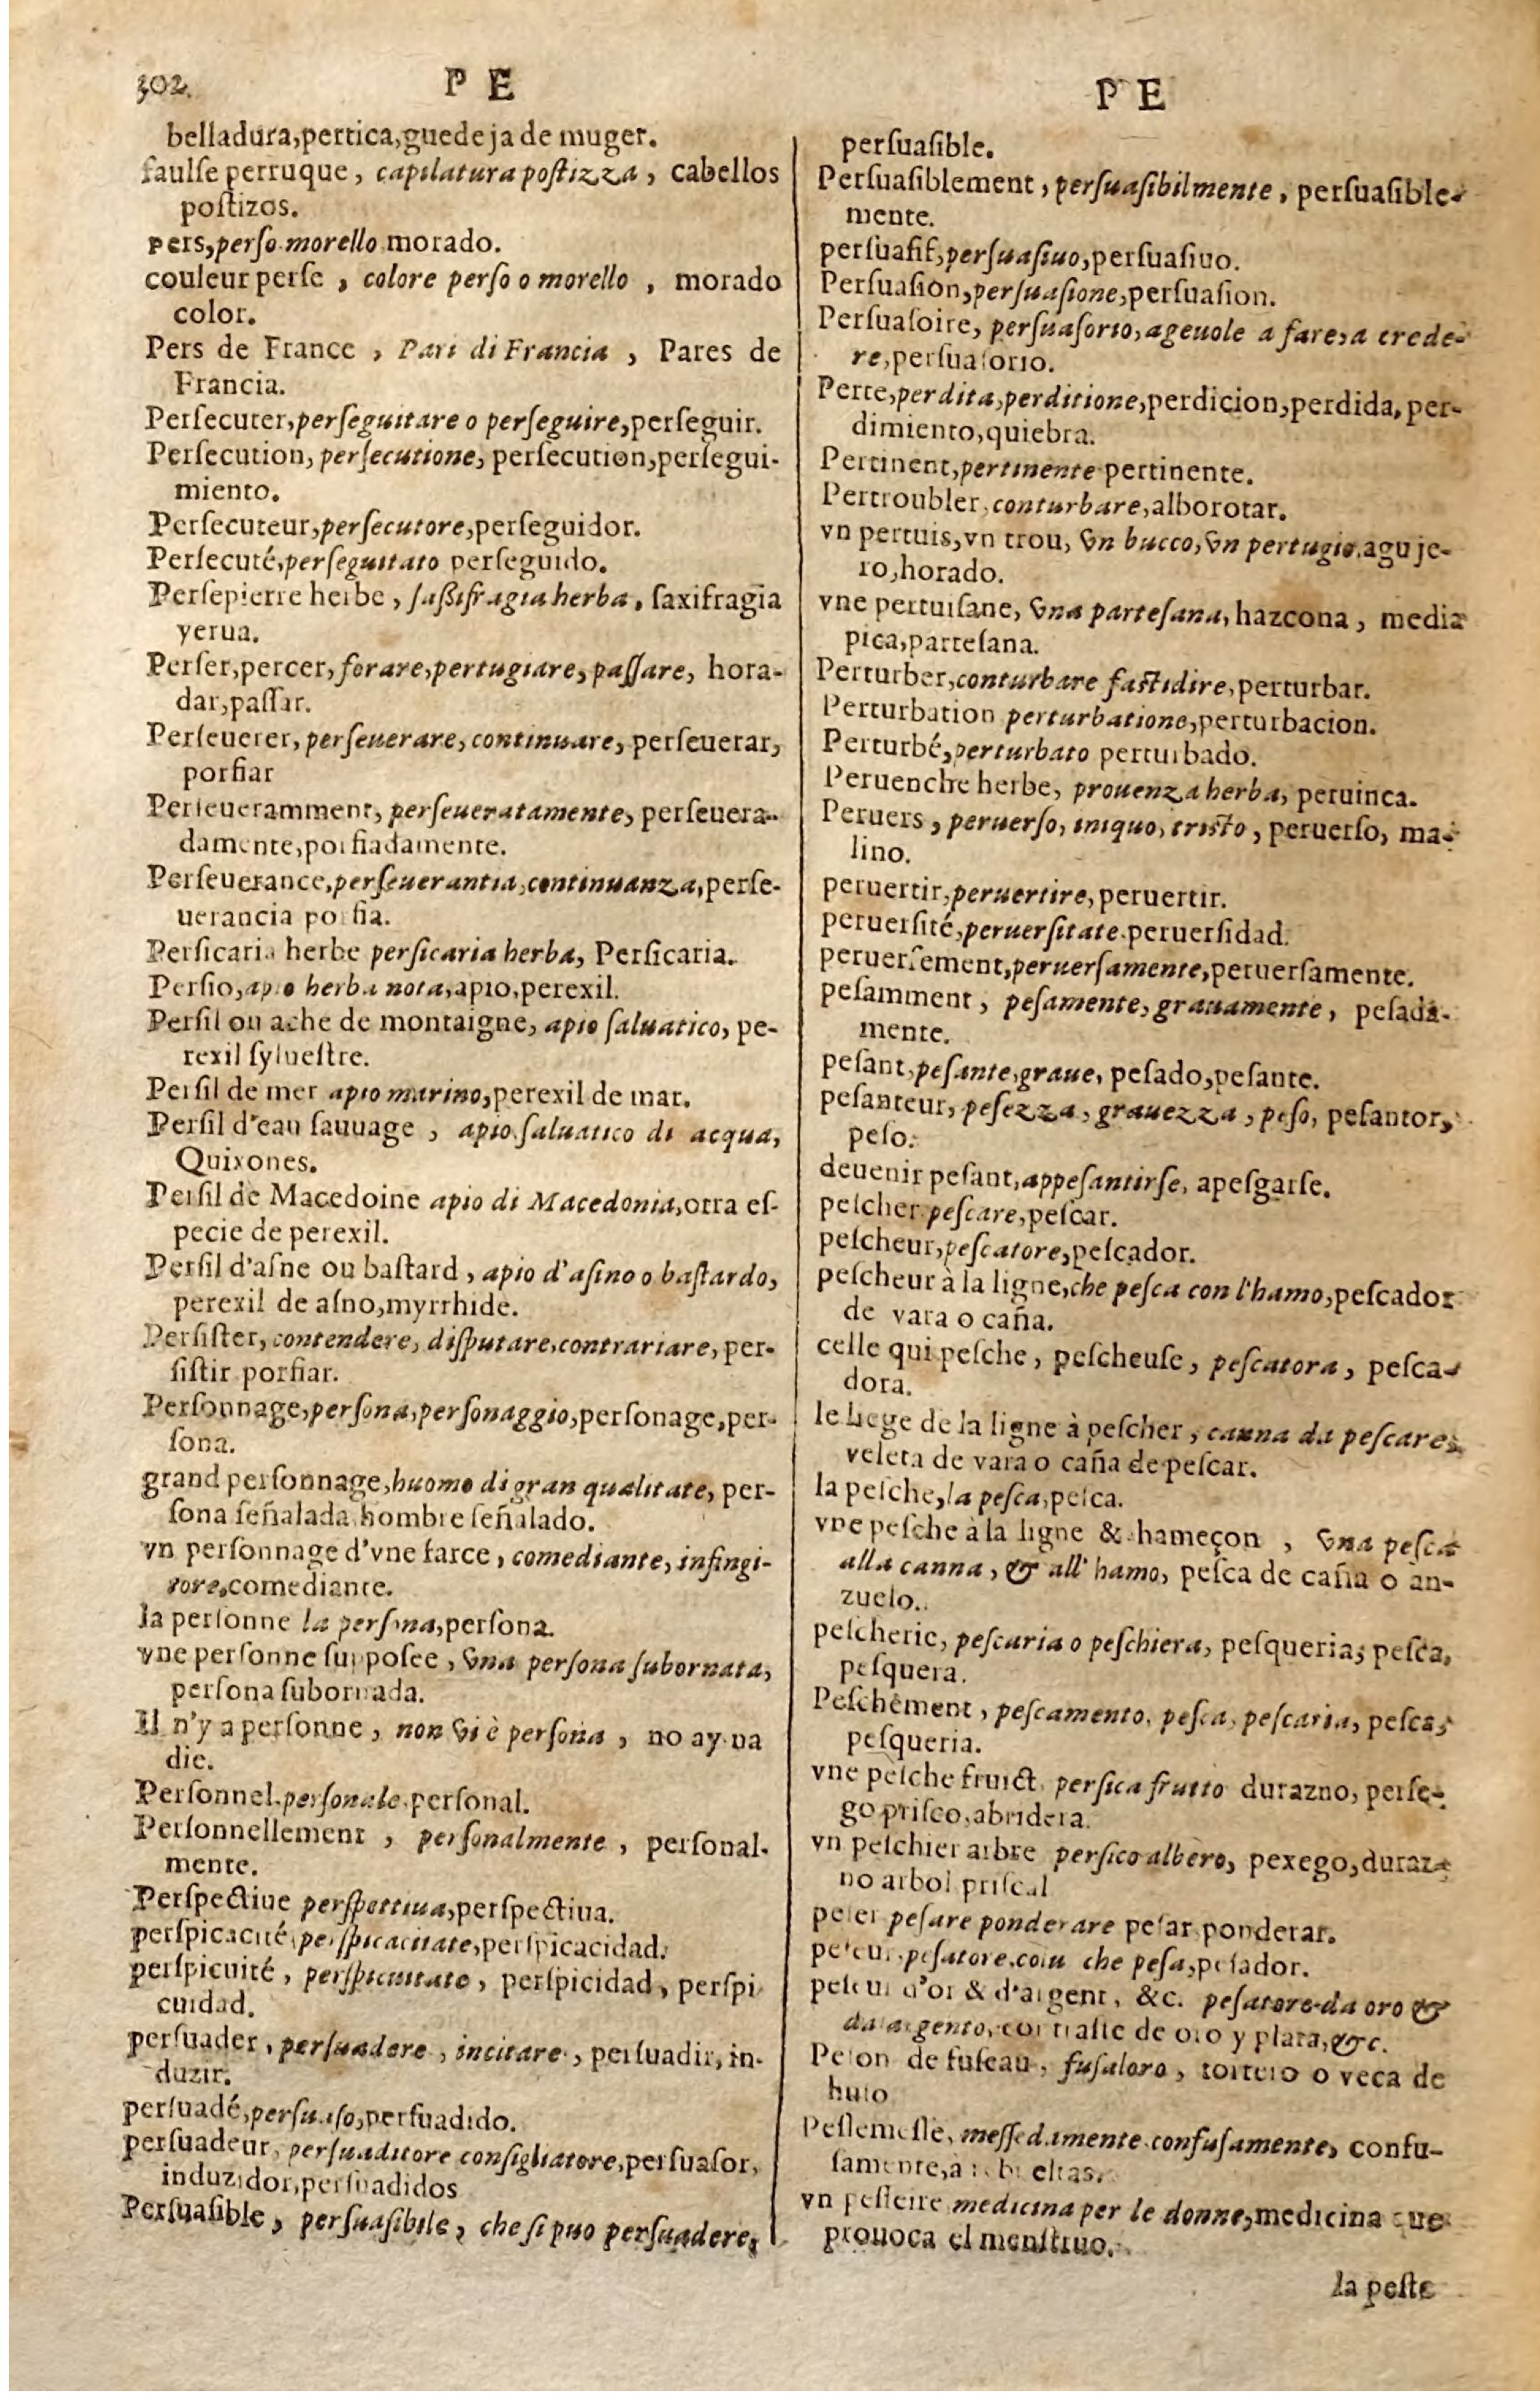 302.
P E
belladura,pertica,guedeja de muger.
faulse perruque, capilatura postizza, cabellos
postizos.
pers,perso morello morado.
couleur perse, colore perso o morello, morado
color.
Pers de France, Pari di Francia, Pares de
Francia.
Persecuter,perseguitare o perseguire,perseguir.
Persecution, persecutione, persecution,persegui-
miento.
Persecuteur,persecutore,perseguidor.
Persecuté,perseguitato perseguido.
Persepierre herbe, sassifragia herba, saxifragia
yerua.
Perser,percer,forare,pertugiare,passare, hora-
dar,passar.
Perseuerer, perseuerare, continuare, perseuerar,
porfiar
Perseueramment, perseueratamente, perseuera-
damente,porfiadamente.
Perseuerance,perseuerantia,continuanza,perse-
uerancia porfia.
Persicaria herbe persicaria herba, Persicaria.
Persio,apio herba nota,apio,perexil.
Persil ou ache de montaigne, apio saluatico, pe-
rexil syluestre.
Persil de mer apio marino,perexil de mar.
Persil d'eau sauuage, apio saluatico di acqua,
Quixones.
Persil de Macedoine apio di Macedonia,otra es-
pecie de perexil.
Persil d'asne ou bastard, apio d'asino o bastardo,
perexil de asno,myrrhide.
Persister, contendere, disputare,contrariare, per-
sistir porfiar.
Personnage,persona,personaggio,personage,per-
sona.
grand personnage,huomo di gran qualitate, per-
sona señalada hombre señalado.
vn personnage d'vne farce, comediante, infingi-
tore,comediante.
la personne la persona,persona.
vne personne supposee, vna persona subornata,
persona subornada.
Il n'y a personne, non vi è persona, no ay na
die.
Personnel.personale.personal.
Personnellement, personalmente, personal-
mente.
Perspectiue perspettiua,perspectiua.
perspicacité,perspicacitate,perspicacidad.
perspicuité, perspicuitate, perspicidad, perspi
cuidad.
persuader, persuadere, incitare, persuadir, in-
duzir.
persuadé,persuaso,persuadido.
persuadeur, persuaditore consigliatore,persuasor,
induzidor,persuadidos
Persuasible, persuasibile, che si puo persuadere,
P E
persuasible.
Persuasiblement, persuasibilmente, persuasible-
mente.
persuasif,persuasiuo,persuasiuo.
Persuasion,persuasione,persuasion.
Persuasoire, persuasorio, ageuole a fare,a crede-
re,persuasorio.
Perte,perdita,perditione,perdicion,perdida, per-
dimiento,quiebra.
Pertinent,pertinente pertinente.
Pertroubler,conturbare,alborotar.
vn pertuis,vn trou, vn bucco,vn pertugio,aguje-
ro,horado.
vne pertuisane, vna partesana, hazcona, media
pica,partesana.
Perturber,conturbare fastidire,perturbar.
Perturbation perturbatione,perturbacion.
Perturbé,perturbato perturbado.
Peruenche herbe, prouenza herba, peruinca.
Peruers, peruerso, iniquo, tristo, peruerso, ma-
lino.
peruertir,peruertire,peruertir.
peruersité,peruersitate.peruersidad.
peruersement,peruersamente,peruersamente.
pesamment, pesamente,grauamente, pesada-
mente.
pesant,pesante,graue, pesado,pesante.
pesanteur, pesezza, grauezza, peso, pesantor,
peso.
deuenir pesant,appesantirse, apesgarse.
pescher pescare,pescar.
pescheur,pescatore,pescador.
pescheur à la ligne,che pesca con l'hamo,pescador
de vara o caña.
celle qui pesche, pescheuse, pescatora, pesca-
dora.
le liege de la ligne à pescher, canna da pescare,
veleta de vara o caña de pescar.
la pesche,la pesca,pesca.
vne pesche à la ligne & hameçon, vna pesca
alla canna, & all' hamo, pesca de caña o an-
zuelo.
pescherie, pescaria o peschiera, pesqueria, pesca,
pesquera.
Peschement, pescamento, pesca, pescaria, pesca,
pesqueria.
vne pesche fruict, persica frutto durazno, perse-
go prisco,abridera.
vn peschier arbre persico albero, pexego,duraz-
no arbol priscal
peser pesare ponderare pesar ponderar.
peseur.pesatore.colui che pesa,pesador.
peseur d'or & d'argent, &c. pesatore da oro &
da argento,contraste de oro y plata,&c.
Peson de fuseau, fusaloro, tortero o veca de
huso
Peslemesle, messedamente.confusamente, confu-
samente,a rebueltas.
vn pesseire medicina per le donne,medicina que
prouoca el menstruo.
la peste